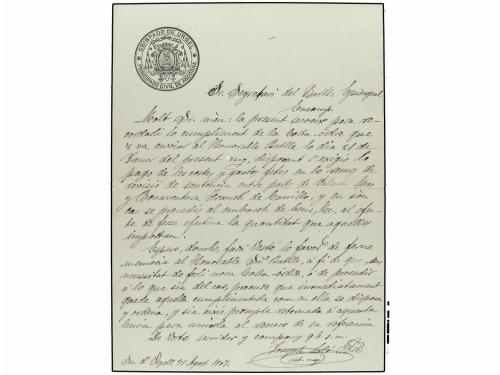 OBISPADO DE URGEL
PRINCIPADO CIVIL DE ANDORRA
Sr. Segretari del Batlle Episcopal
Encamp.
Molt Sr. meu: la present serveix pera re-
cordarli lo cumpliment de la Carta-órdre que
se va enviar al Honorable Batlle lo dia 21 de
del present any, disposant s'exigís lo
pago de las costes y gastos fetes en lo
revisió de sentencia entre parts de
y Bonaventura de Canillo, y en son
cas se procedís al embarch de bens, &c. al efec-
te de fer efectiva la quantitat que aquelles
importan.
Espero, donchs, fará Vosté lo favor de ferne
memoria al Honorable Sr. Batlle, a fi de que, sen
necessitat de nova Carta-órdre, ó de procedir
á lo que sia del cas, procure que inmediatament
quede aquella cumplimentada com en ella se disposa
y ordena, y sia aixís prompte retornada á aquesta
Curia pera unirla al de sa referencia
De Vosté servidor y company q. b. s. m.
Seu d'Urgell 31 Agost 1907.